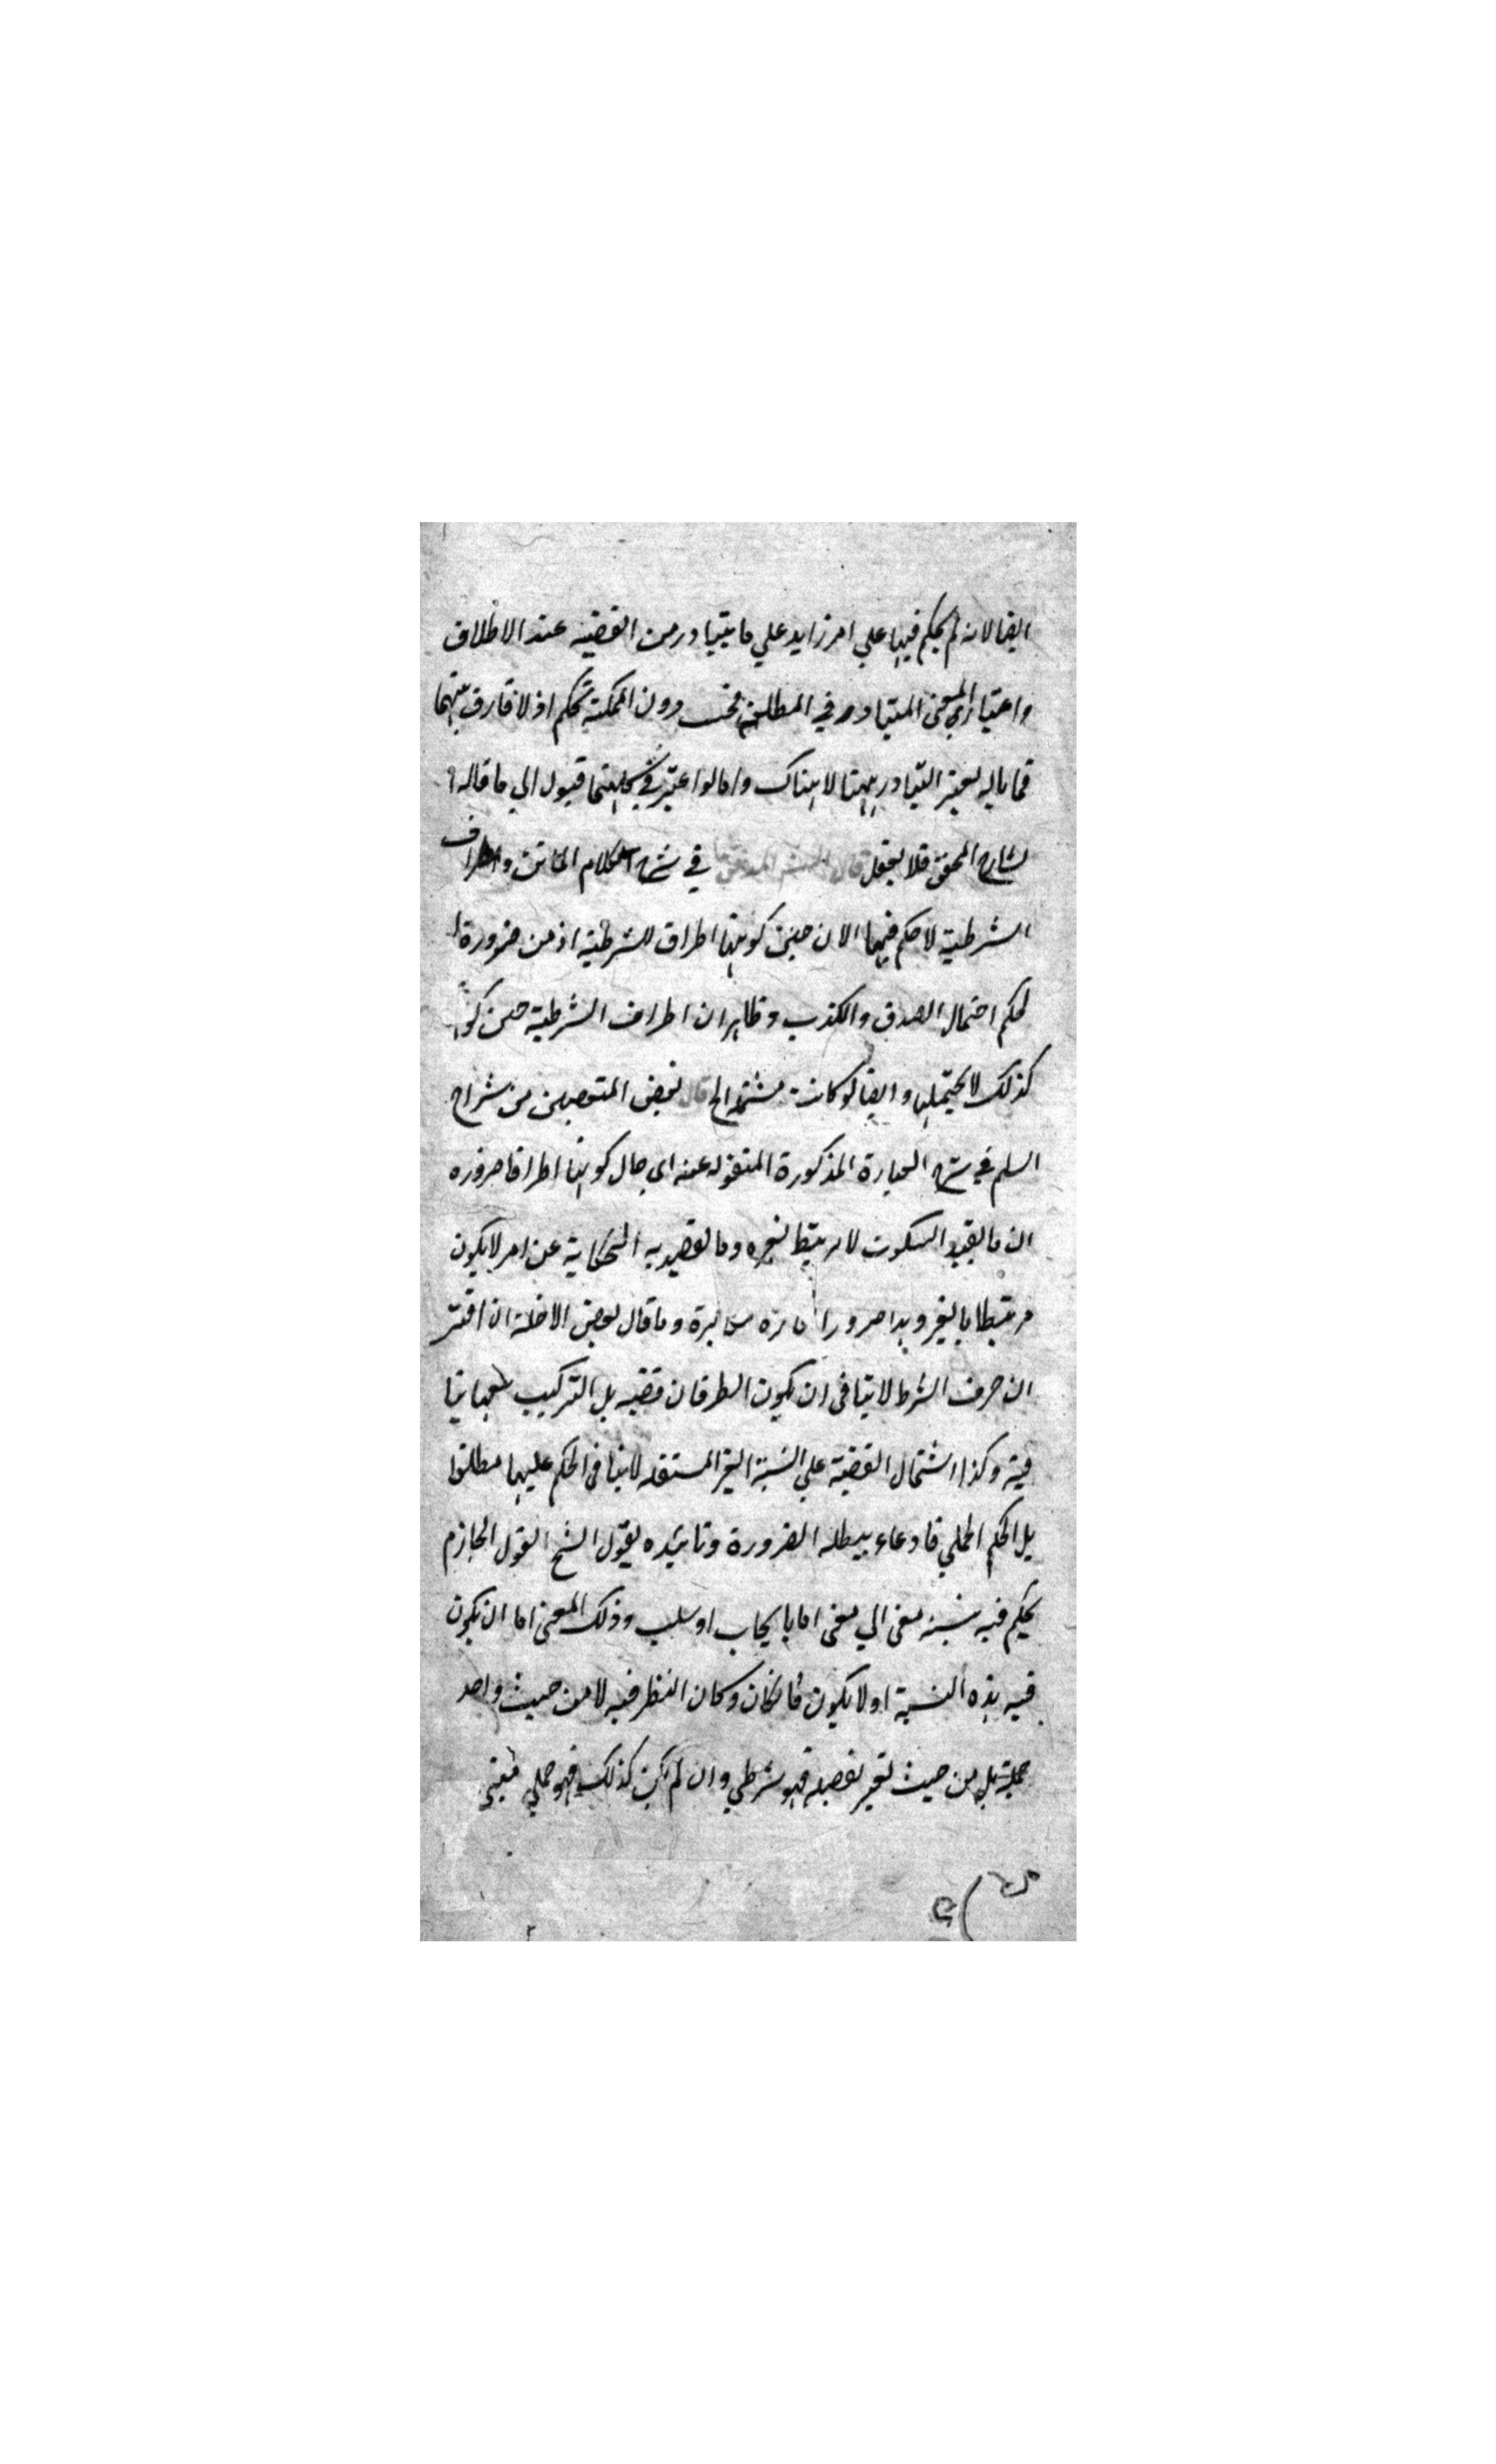 ايضا لانه لم يحكم فيها علي امر زايد علي ما يتبادر من القضيه عند الاطلاق
واعتبار المعنى المتبادر في المطلقه فحسب دون الممكنة تحكم اذ لا فارق بينهما
فما باله يعتبر التبادر ههنا لا هناك واما لو اعتبر في كليهما قبول الي ما قاله ا
لشارح المحقق فلا يعقل قال في شرح كلام الماتن واطراف
الشرطية لا حكم فيها الان حين كونها اطراف للشرطية اذ من ضرورة ا
لحكم احتمال الصدق والكذب وظاهر ان اطراف الشرطية حين كونها
كذلك لا يحتملها وايضا لو كانت مشتملة الخ قال بعض المتعصبين من شراح
السلم في شرح العبارة المذكورة المنقوله عنه اى حال كونها اطرافا ضروره
ان ما يفيد السكوت لا يرتبط لغيره وما يقصد به الحكاية عن امر لا يكون
مرتبطا بالغير وهذا ضروري وما قال بعض الاجلة ان
ان حرف الشرط لا ينافى ان يكون الطرفان قضيه بل التركيب
فية وكذا اشتمال القضية علي النسبة الغير المستقله لا ينافى الحكم عليها مطلقا
بل الحكم الحملي فادعاء يبطله الضرورة وتائيده بقول الشيخ القول الجازم
يحكم فيه بنسبة معنى الي معنى اما بايجاب او سلب وذلك المعنى اما ان يكون
فيه هذه النسبة او لا يكون فان كان وكان النظر فيه لا من حيث واحد
جملة بل من حيث يعتبر تفصيله فهو شرطي وان لم يكن كذلك فهو حملي